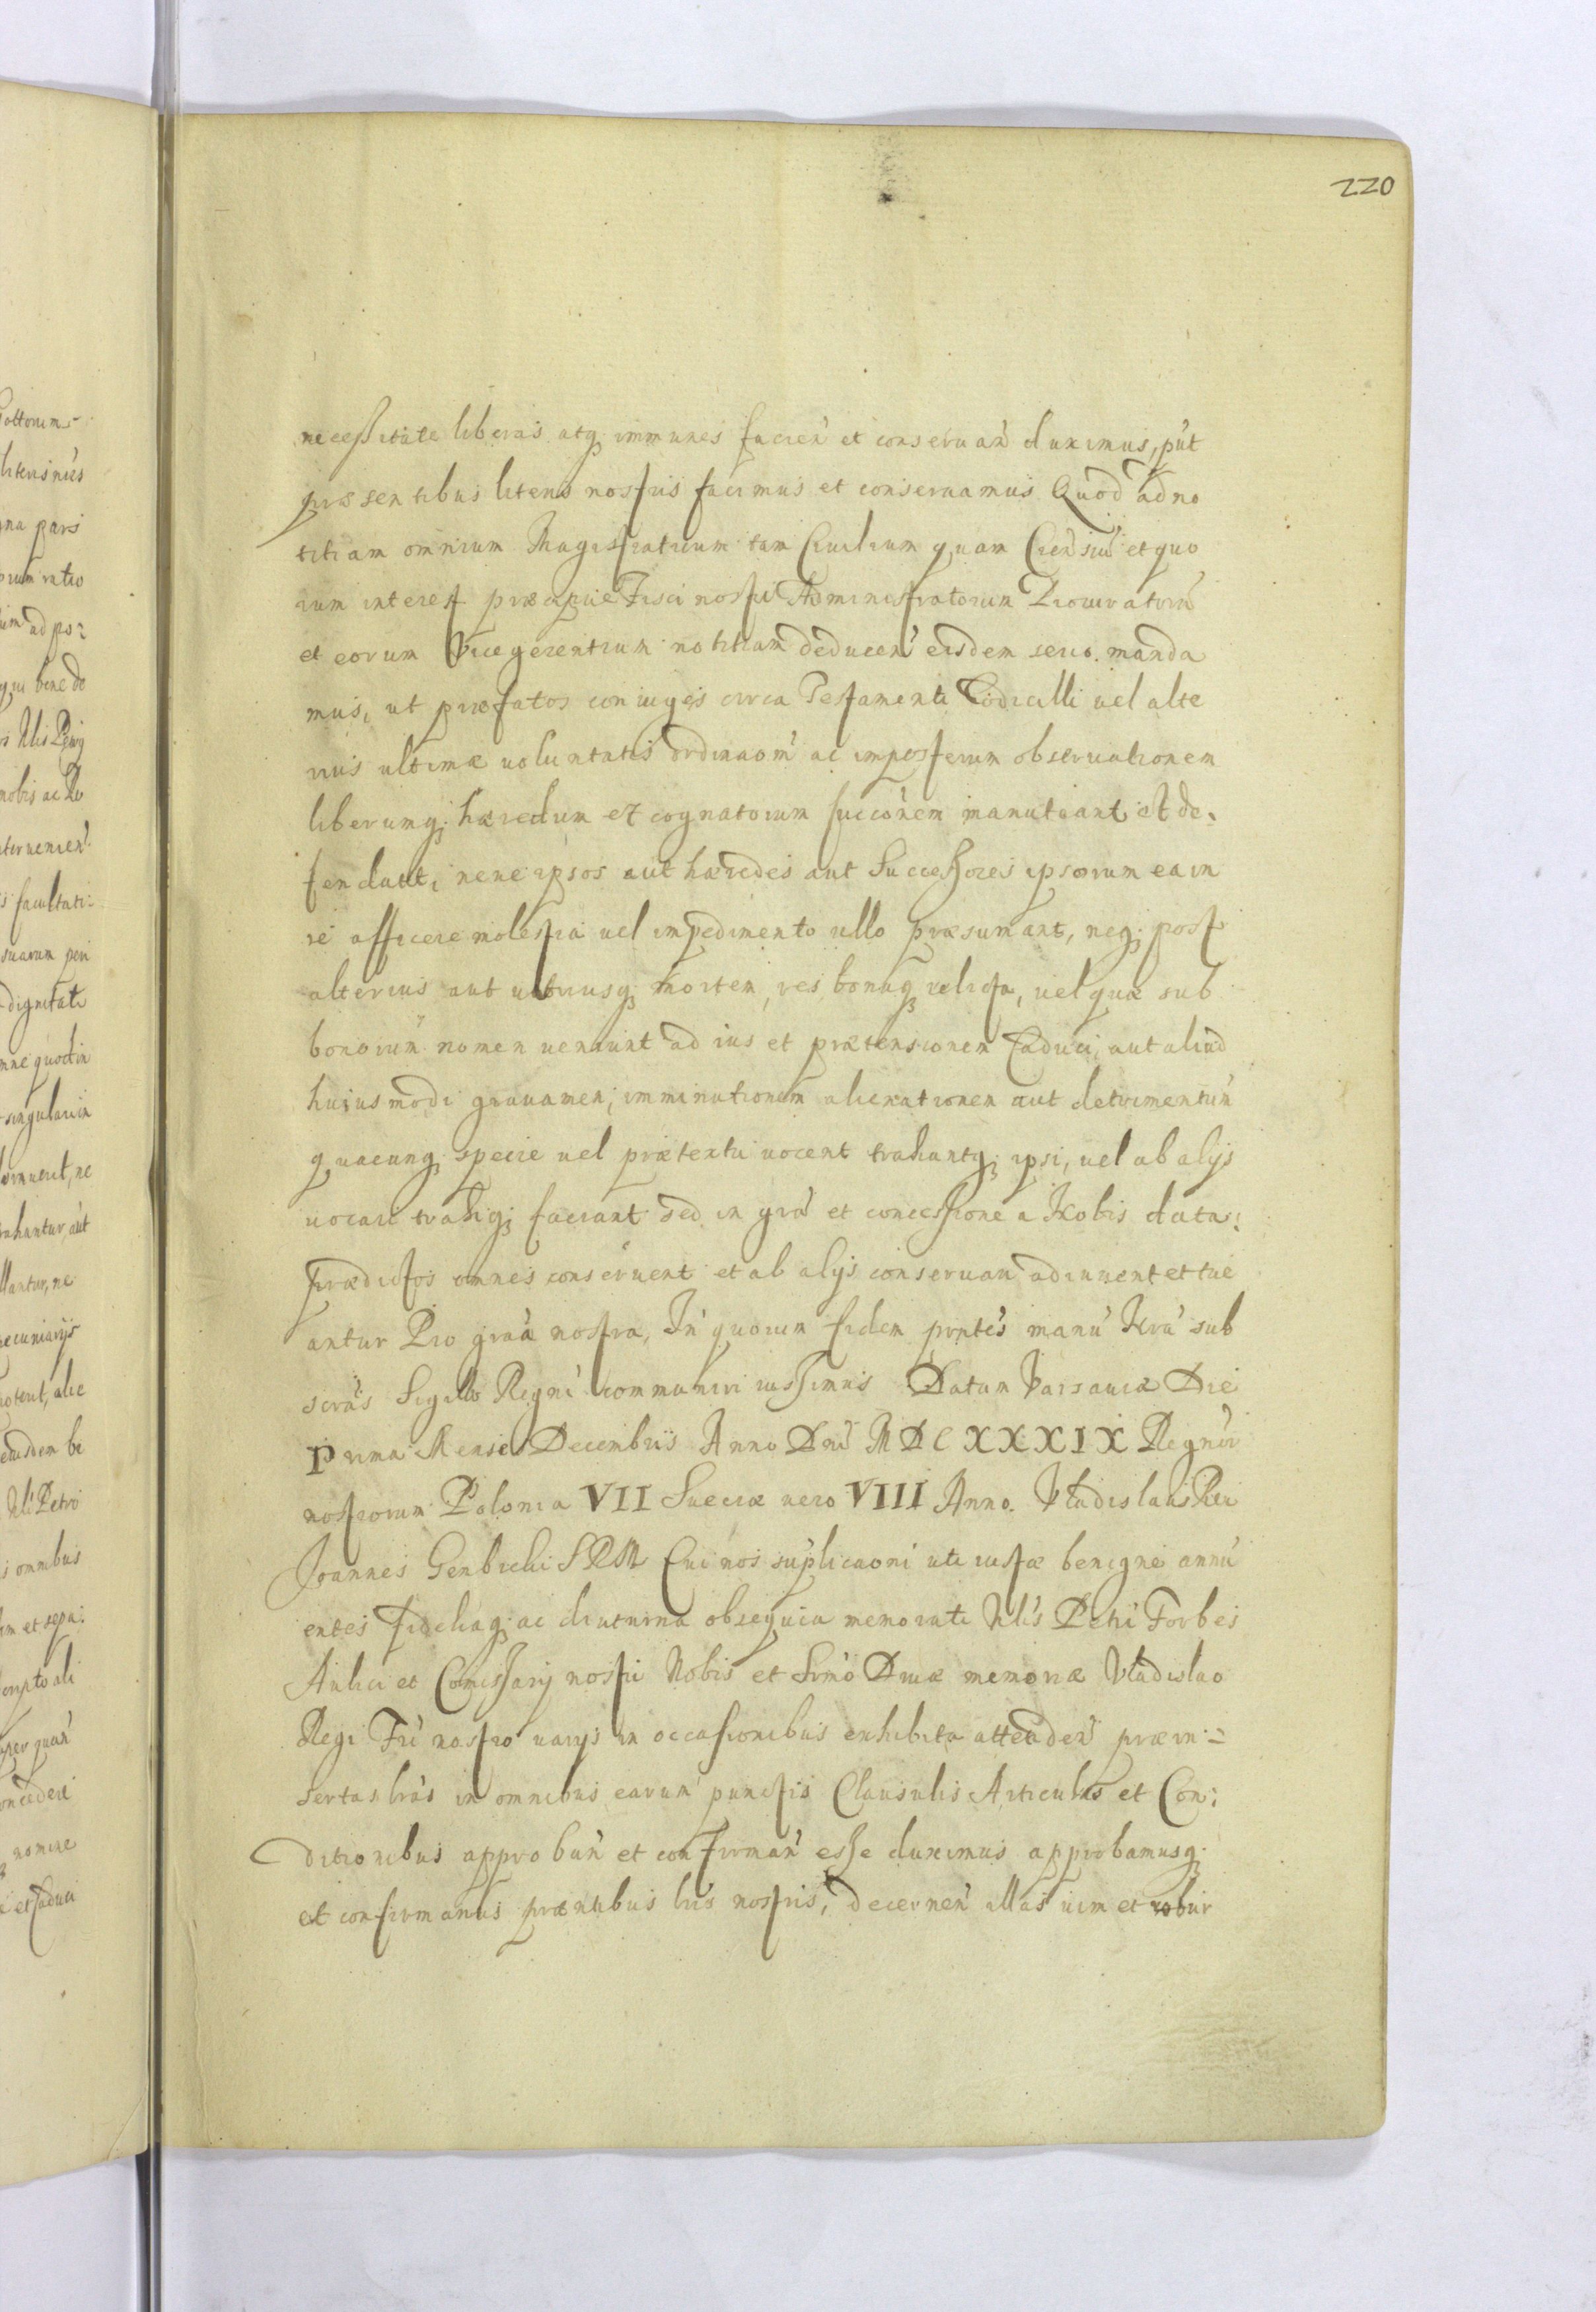 220
necessitate liberas atq immunes facien et conseruan duximus, put
præsentibus literis nostris facimus et conseruamus Quod ad no
titiam omnium Magistratuum tam Ciuilium quam et quo
rum interest præcipue Fisci nostri Administratorum Procuratorũ
et eorum Vicegerentium notitiam deducen eisdem serio manda
mus, ut præfatos coniuges circa Testamenti Codicilli uel alte
rius ultimæ uoluntatis ordinaom ac imposterum obseruationem
liberumq hæredum et cognatorum succonem manuteant et de:
fendant, neue ipsos aut hæredes aut Successores ipsorum ea in
re afficere molestia uel impedimento ullo præsumant, neq post
alterius aut utriusq mortem, res bonaq relicta, uel quæ sub
bonorum nomen ueniunt ad ius et prætensionem Caduci, aut aliud
huiusmodi grauamen, imminutionem alienationem aut detrimentum
quacunq specie uel prætextu uocent trahantq ipsi, uel ab alijs
uocari trahiq faciant sed in gra et concessione a Nobis data:
prædictos omnes conseruent et ab alijs conseruari adiuuent et tue
antur Pro graa nostra, In quorum fidem pntes manu Nra sub
scras Sigillo Regni communiri iussimus Datum Varsauiæ Die
Prima Mensis Decembris Anno Dni MDCXXXIX Regnor
nostrorum Polonia VII Sueciæ uero VIII Anno. Vladislaus Rex
Joannes Gembicki SRM Cui nos suplicaoni uti iustæ benigne annu
entes fideliaq ac diuturna obsequia memorati Nlis Petri Forbes
Aulici et Comissarij nostri Nobis et Srmo Diuæ memoriæ Vladislao
Regi Fri nostro uarijs in occasionibus exhibita attenden præin=
sertas lras in omnibus earum punctis Clausulis Articulis et Con:
ditionibus approban et confirman esse duximus approbamusq
et confirmamus præntibus lris nostris, decernen illas uim et robur